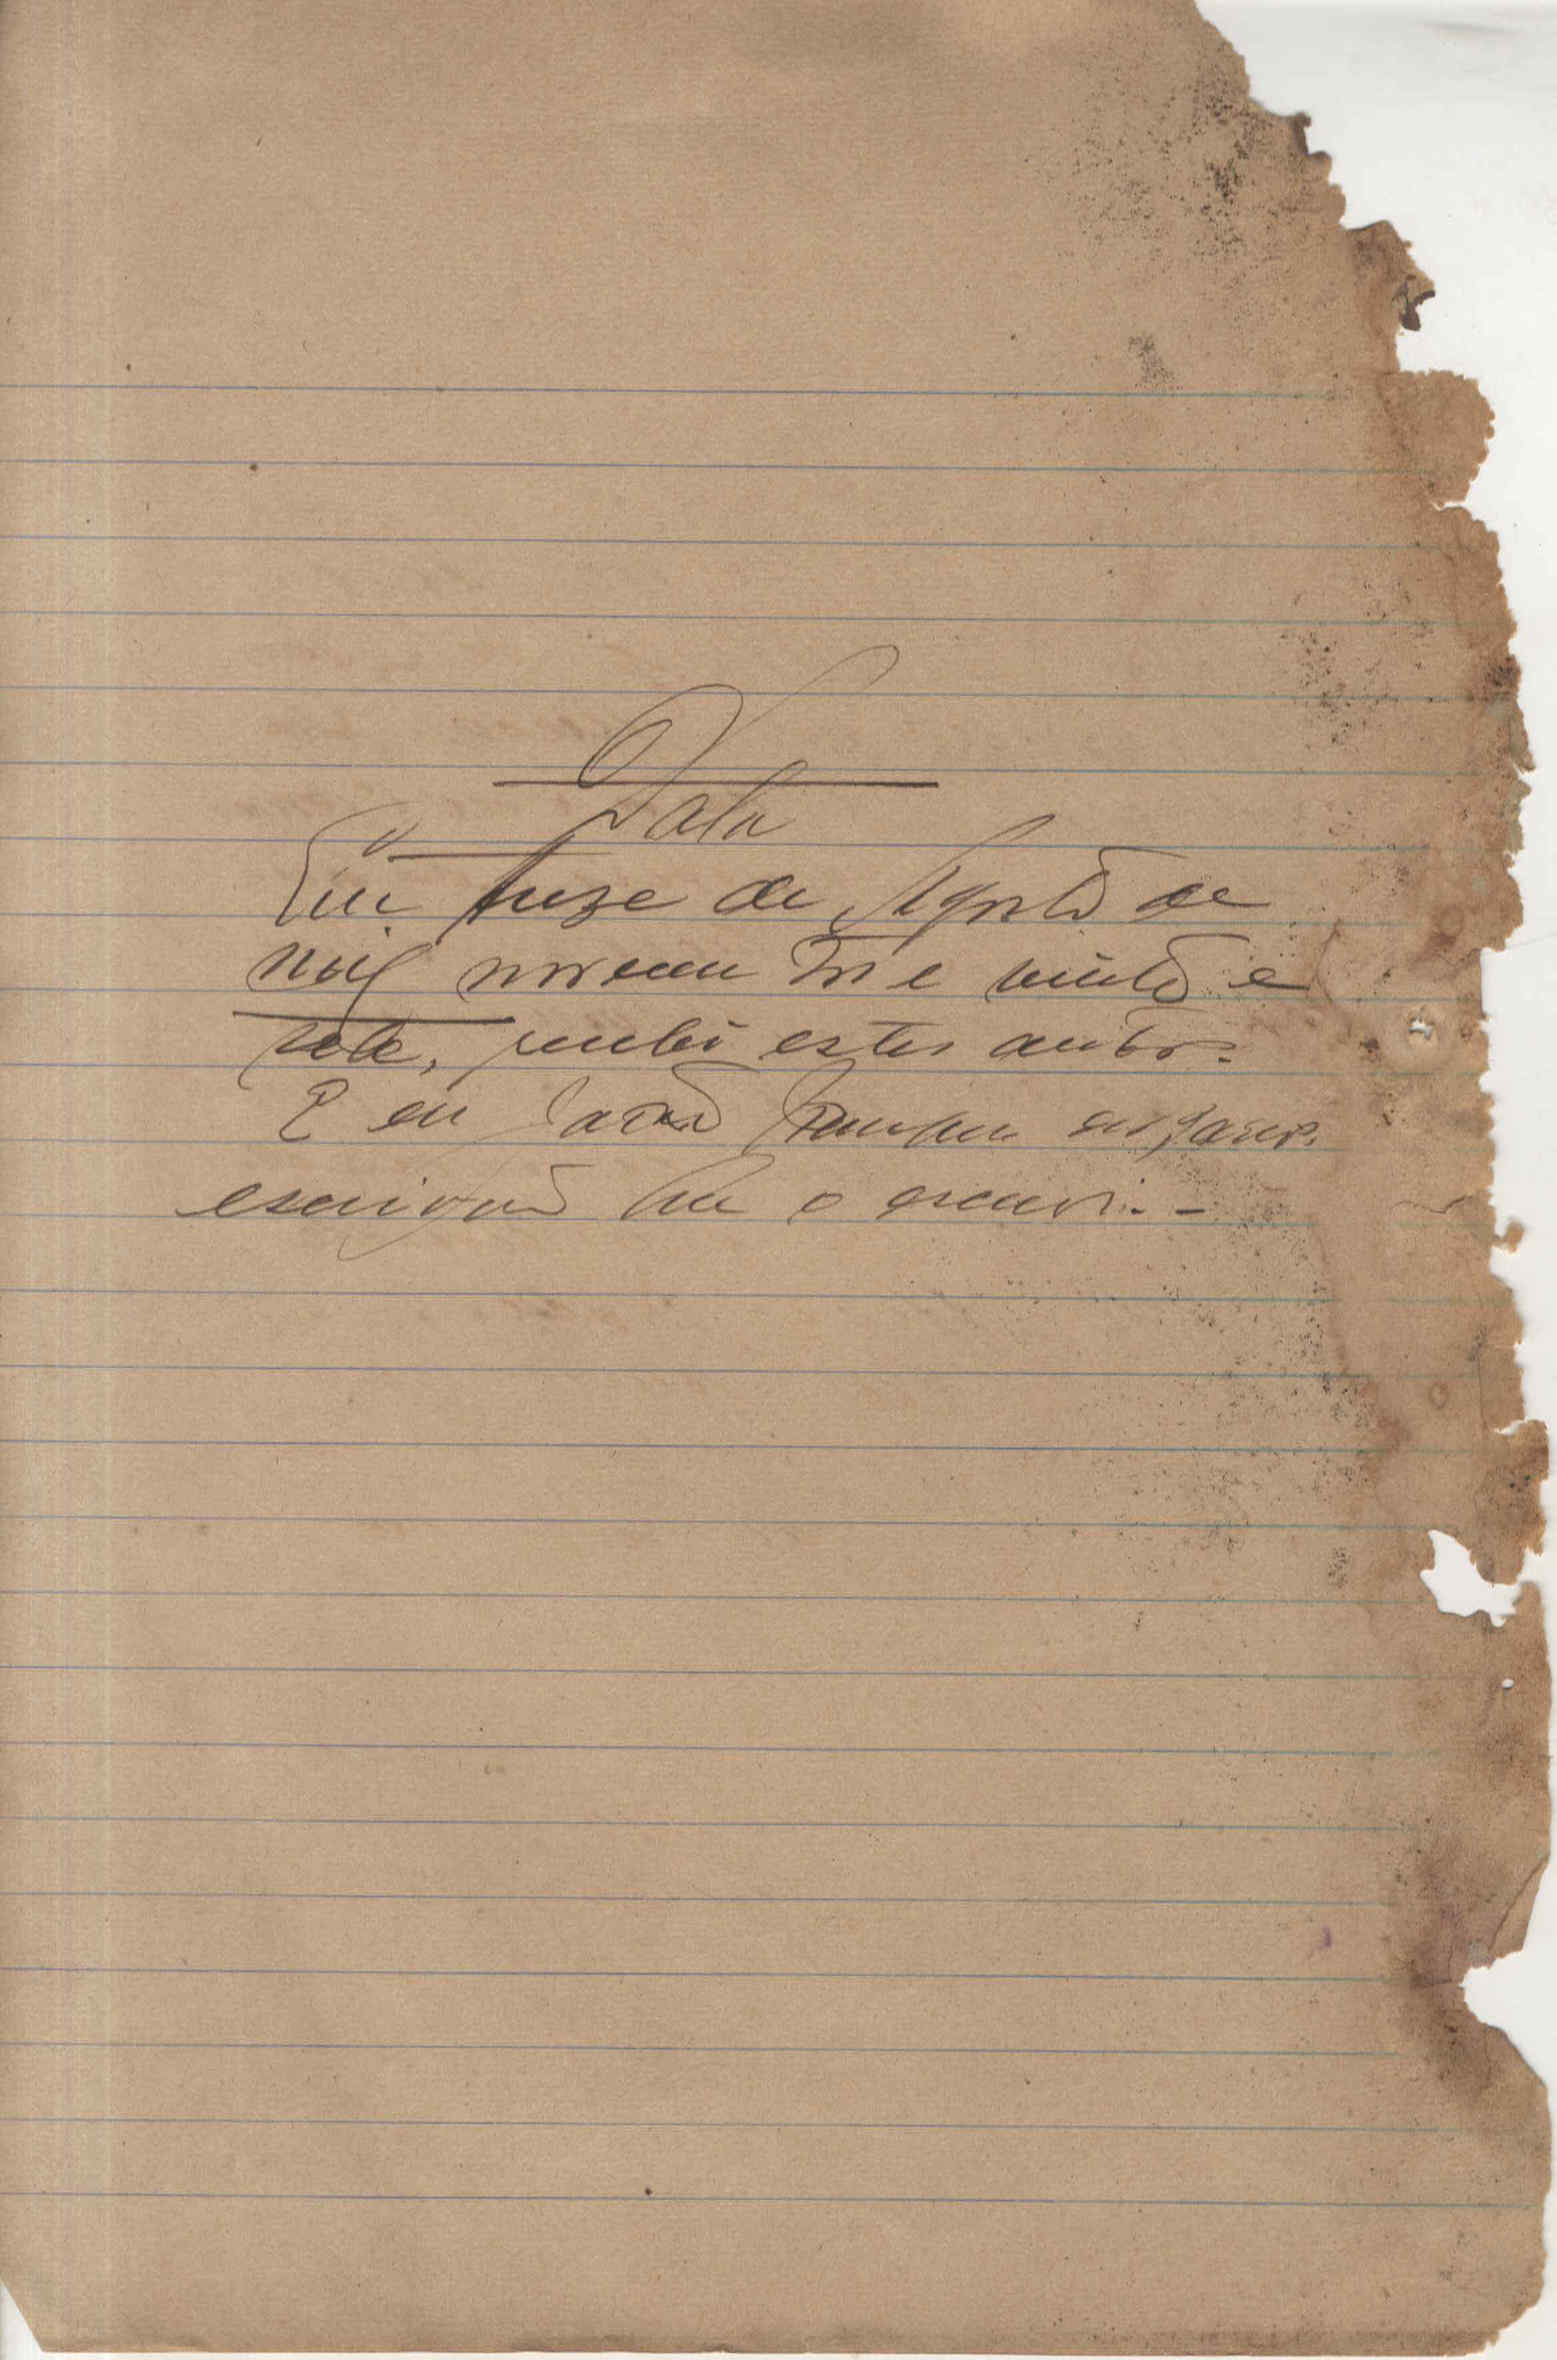 Data
Em treze de Agosto de
mil novecentos e vinte e
sete, recebi estes autos.
E eu
escrivão que o escrevi.